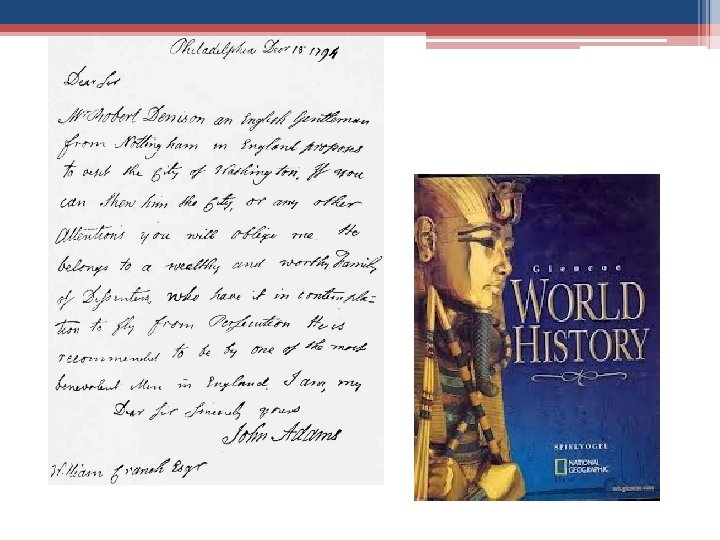 Philadelphia Decr 18 1794
Dear Sir
Mr Robert Denison an English Gentleman
from Nottingham in England proposes
to visit the City of Washington. If you
can Shew him the City, or any other
Attentions you will oblige me. He
belongs to a wealthy and worthy Family
of Dissenters, who have it in contempla-
tion to fly from Persecution He is
recommended to be by one of the most
benevolent Men in England. I am, my
Dear Sir Sincerely yours
John Adams
William Cranch Esqr
Glencoe
WORLD
HISTORY
SPIELVOGEL
NATIONAL
GEOGRAPHIC